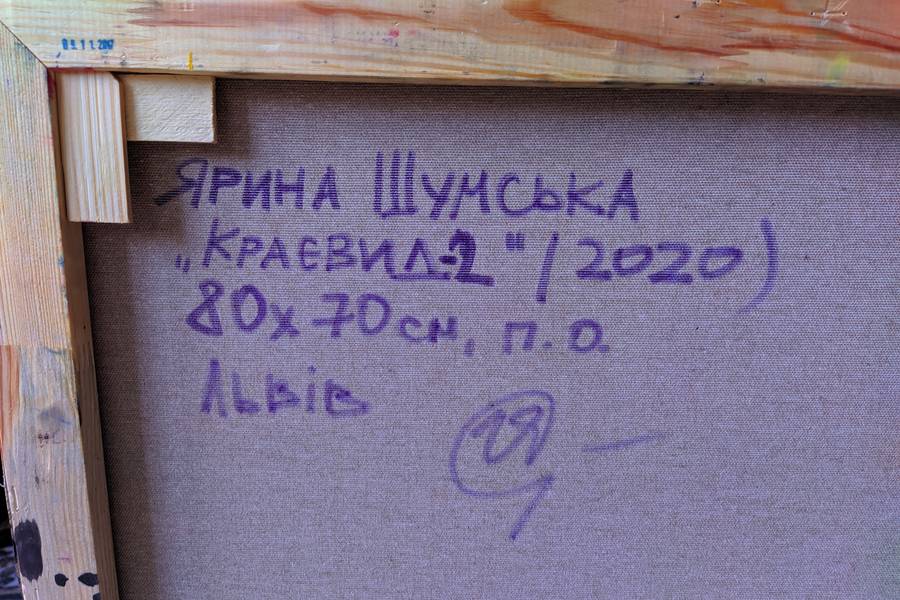 09.11.2017
ЯРИНА ШУМСЬКА
„КРАЄВИД-2" / 2020)
80х70 см, п.о.
Львів